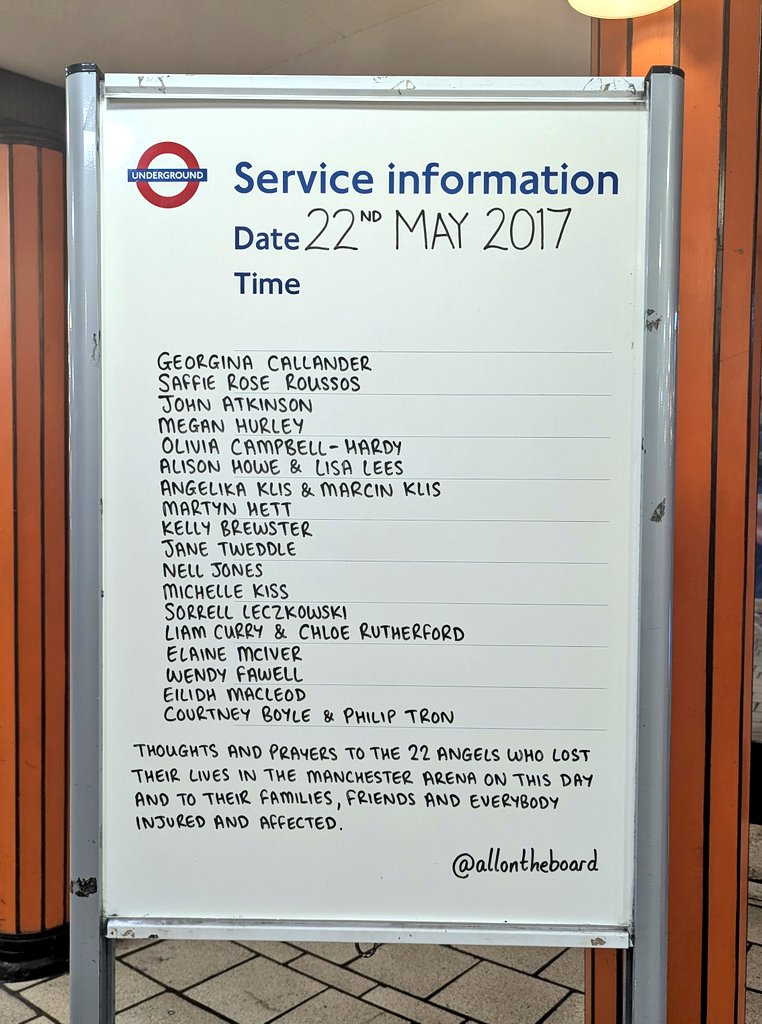 UNDERGROUND
Service information
Date 22ND MAY 2017
Time
GEORGINA CALLANDER
SAFFIE ROSE ROUSSOS
JOHN ATKINSON
MEGAN HURLEY
OLIVIA CAMPBELL-HARDY
ALISON HOWE & LISA LEES
ANGELIKA KLIS & MARCIN KLIS
MARTYN HETT
KELLY BREWSTER
JANE TWEDDLE
NELL JONES
MICHELLE KISS
SORRELL LECZKOWSKI
LIAM CURRY & CHLOE RUTHERFORD
ELAINE MCIVER
WENDY FAWELL
EILIDH MACLEOD
COURTNEY BOYLE & PHILIP TRON
THOUGHTS AND PRAYERS TO THE 22 ANGELS WHO LOST
THEIR LIVES IN THE MANCHESTER ARENA ON THIS DAY
AND TO THEIR FAMILIES, FRIENDS AND EVERYBODY
INJURED AND AFFECTED.
@allontheboard